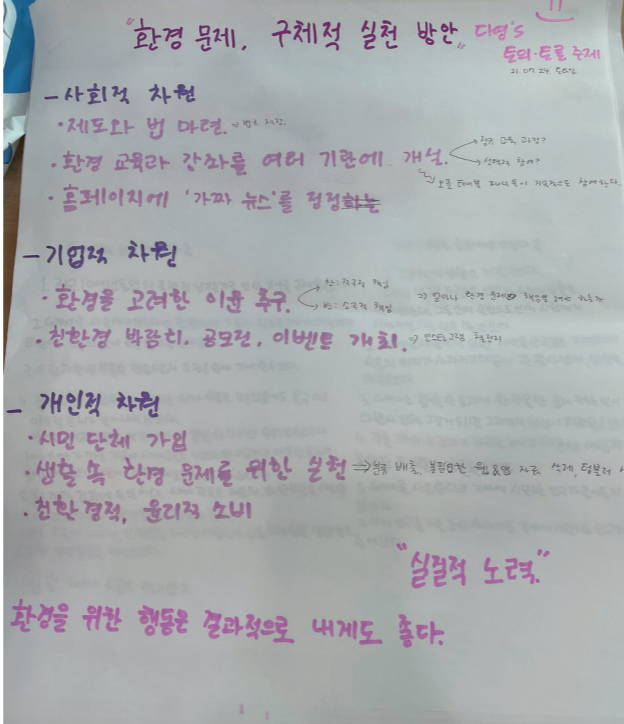 "환경 문제, 구체적 실천 방안" 다영's
토의·토론 주제
21.07.24
- 사회적 차원
· 제도와 법 마련.
· 환경 교육과 강좌를 여러 기관에 개설. → 필수 교육 과정?
→ 선택적 참여?
· 홈페이지에 '가짜 뉴스'를 정정하는
- 기업적 차원
· 환경을 고려한 이윤 추구. → 찬: 적극적 책임
→ 반: 소극적 책임
⇒ 얼마나 환경 문제에 책임을
· 친환경 박람회, 공모전, 이벤트 개최.
- 개인적 차원
· 시민 단체 가입
· 생활 속 환경 문제를 위한 실천 ⇒ 분류 배출, 불필요한 자료 삭제, 텀블러
· 친환경적, 윤리적 소비
"실질적 노력."
환경을 위한 행동은 결과적으로 내게도 좋다.